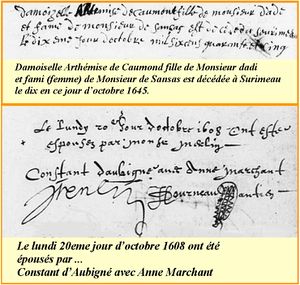 damoizelle Artemise de caumont fille de monsieur dade
et fame de monsieur de sansas est décédée a surimeau
le dix eme jour doctobre mil six cens quarante et cinq
Damoiselle Arthémise de Caumond fille de Monsieur dadi
et fami (femme) de Monsieur de Sansas est décédée à Surimeau
le dix en ce jour d'octobre 1645.
Le Lundy 20e Jour doctobre 1608 Ont este
espouses par
Constant daubigne avec Anne Marchant
Le lundi 20eme jour d'octobre 1608 ont été
épousés par ...
Constant d'Aubigné avec Anne Marchant